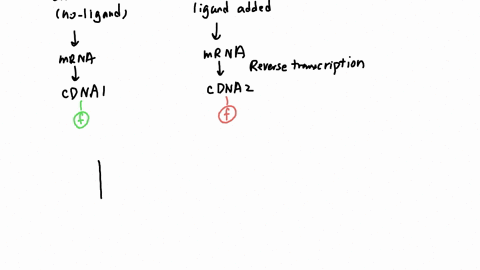 (no-ligand)
ligand added
mRNA
mRNA
Reverse transcription
cDNA1
cDNA2
f
f